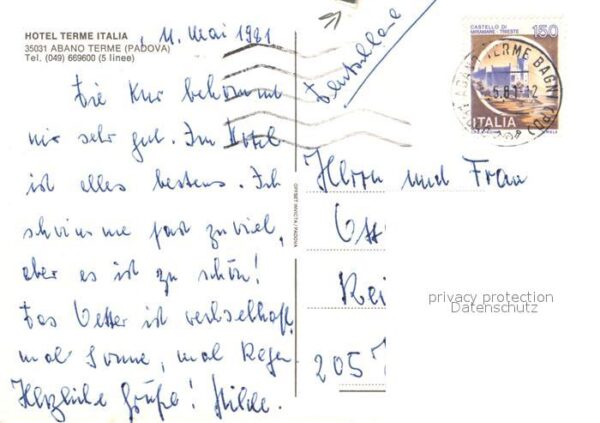 HOTEL TERME ITALIA
35031 ABANO TERME (PADOVA)
Tel. (049) 669600 (5 linee)
, 11. Mai 1981
Die Kur bekommt
mir sehr gut. Im Hotel
ist alles bestens. Ich
schwimme fast zu viel,
aber es ist zu schön!
Das Wetter ist wechselhaft,
mal Sonne, mal Regen.
Herzliche Grüße! Hilde.
OFFSET INVICTA PADOVA
Deutschland
CASTELLO DI
MIRAMARE - TRIESTE
150
ITALIA
ABANO TERME BAGNI (PD)
5.81-12
Herrn und Frau
Ott
Rei
2057
privacy protection
Datenschutz